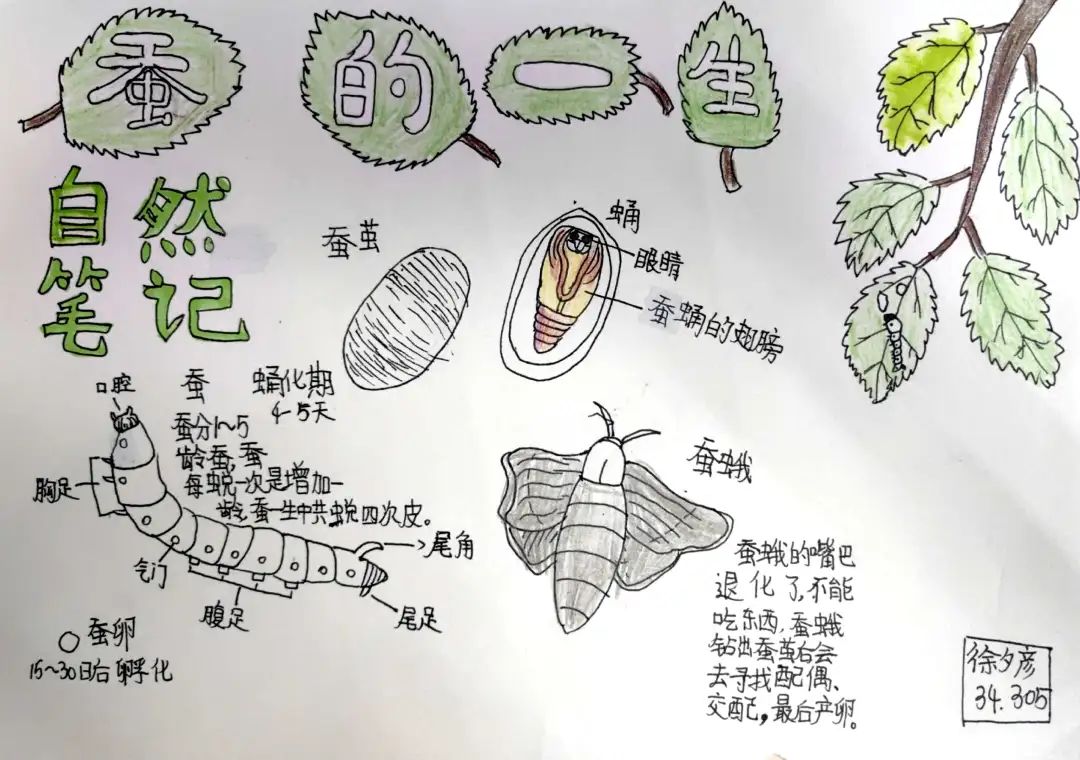 蚕的一生
自然
笔记
蚕茧
蛹
眼睛
蚕蛹的翅膀
口腔
胸足
气门
腹足
尾角
尾足
蚕 蛹化期
4-5天
蚕分1~5
龄蚕,蚕
每蜕一次是增加一
龄,蚕一生中共蜕四次皮。
蚕卵
15~30日后孵化
蚕蛾
蚕蛾的嘴巴
退化了,不能
吃东西,蚕蛾
钻出蚕茧后会
去寻找配偶、
交配,最后产卵。
徐夕彦
34.305